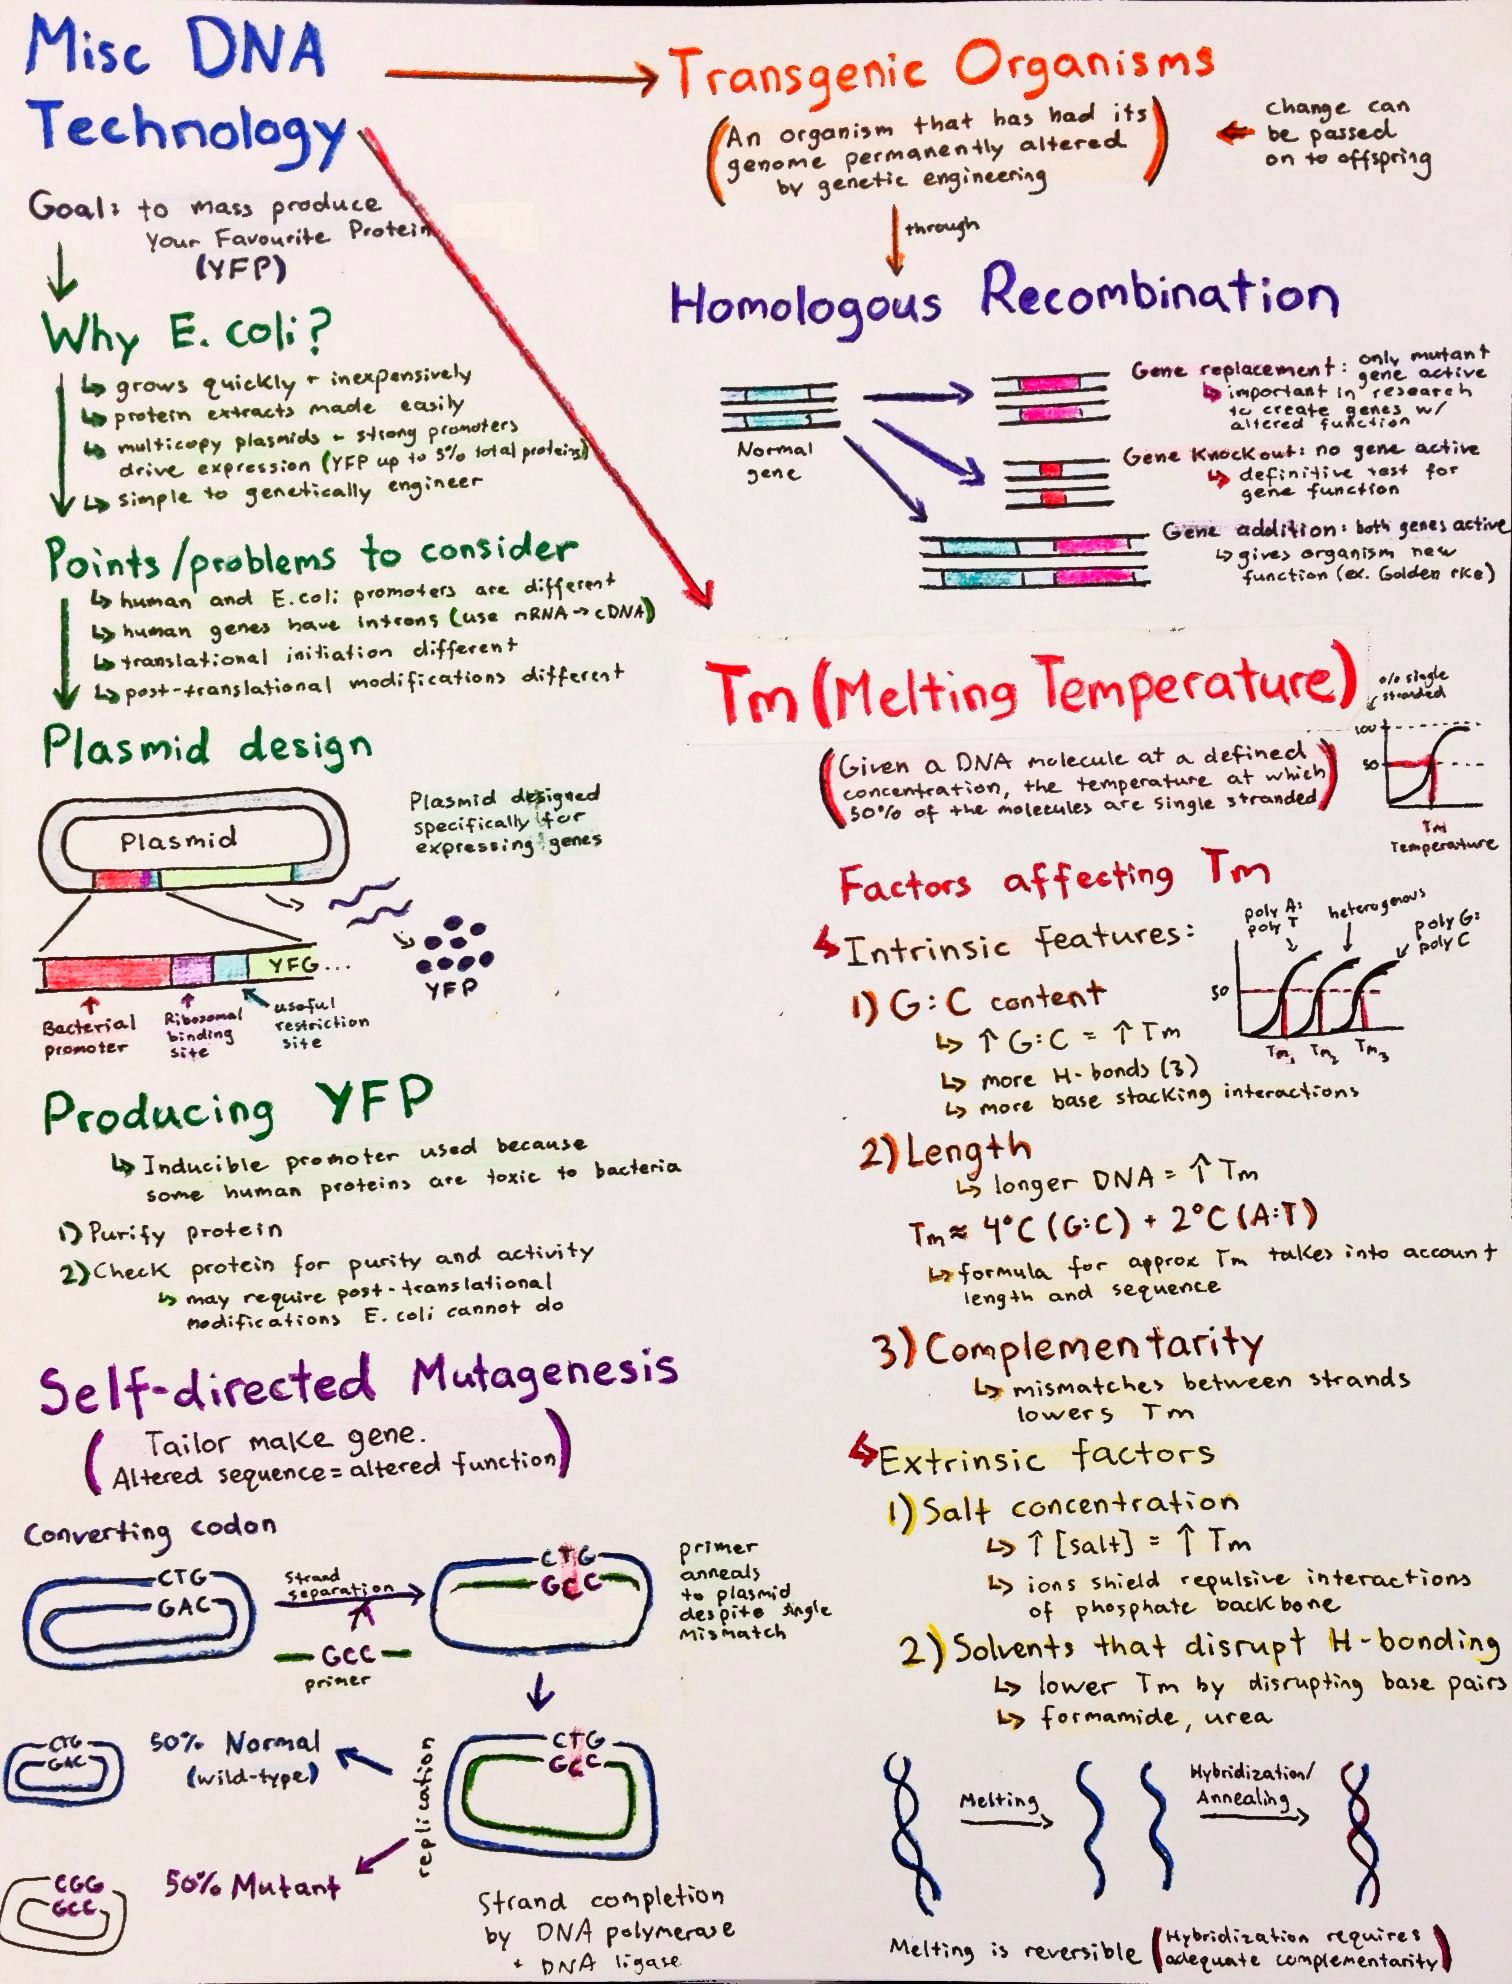 Misc DNA
Technology
Goal: to mass produce
Your Favourite Protein
(YFP)
Why E. coli?
↳ grows quickly + inexpensively
↳ protein extracts made easily
↳ multicopy plasmids + strong promoters
drive expression (YFP up to 5% total proteins)
↳ simple to genetically engineer
Points/problems to consider
↳ human and E.coli promoters are different
↳ human genes have introns (use mRNA→cDNA)
↳ translational initiation different
↳ post-translational modifications different
Plasmid design
Plasmid
Plasmid designed
specifically for
expressing genes
YFG...
YFP
Bacterial
promoter
Ribosomal
binding
site
useful
restriction
site
Producing YFP
↳ Inducible promoter used because
some human proteins are toxic to bacteria
1) Purify protein
2) Check protein for purity and activity
↳ may require post-translational
modifications E. coli cannot do
Self-directed Mutagenesis
(Tailor make gene.
Altered sequence = altered function)
Converting codon
CTG
GAC
Strand
separation
GCC
primer
CTG
GCC
primer
anneals
to plasmid
despite single
mismatch
CTG
GCC
replication
CTG
GAC
50% Normal
(wild-type)
CGG
GCC
50% Mutant
Strand completion
by DNA polymerase
+ DNA ligase
Transgenic Organisms
(An organism that has had its
genome permanently altered
by genetic engineering)
change can
be passed
on to offspring
through
Homologous Recombination
Normal
gene
Gene replacement: only mutant
gene active
↳ important in research
to create genes w/
altered function
Gene Knockout: no gene active
↳ definitive test for
gene function
Gene addition: both genes active
↳ gives organism new
function (ex. Golden rice)
Tm (Melting Temperature)
(Given a DNA molecule at a defined
concentration, the temperature at which
50% of the molecules are single stranded)
% single
stranded
100
50
Tm
Temperature
Factors affecting Tm
↳ Intrinsic features:
poly A:
poly T
heterogenous
poly G:
poly C
50
Tm1 Tm2 Tm3
1) G:C content
↳ ↑ G:C = ↑ Tm
↳ more H-bonds (3)
↳ more base stacking interactions
2) Length
↳ longer DNA = ↑ Tm
Tm ≈ 4°C (G:C) + 2°C (A:T)
↳ formula for approx Tm takes into account
length and sequence
3) Complementarity
↳ mismatches between strands
lowers Tm
↳ Extrinsic factors
1) Salt concentration
↳ ↑ [salt] = ↑ Tm
↳ ions shield repulsive interactions
of phosphate backbone
2) Solvents that disrupt H-bonding
↳ lower Tm by disrupting base pairs
↳ formamide, urea
Melting
Hybridization/
Annealing
Melting is reversible (Hybridization requires
adequate complementarity)